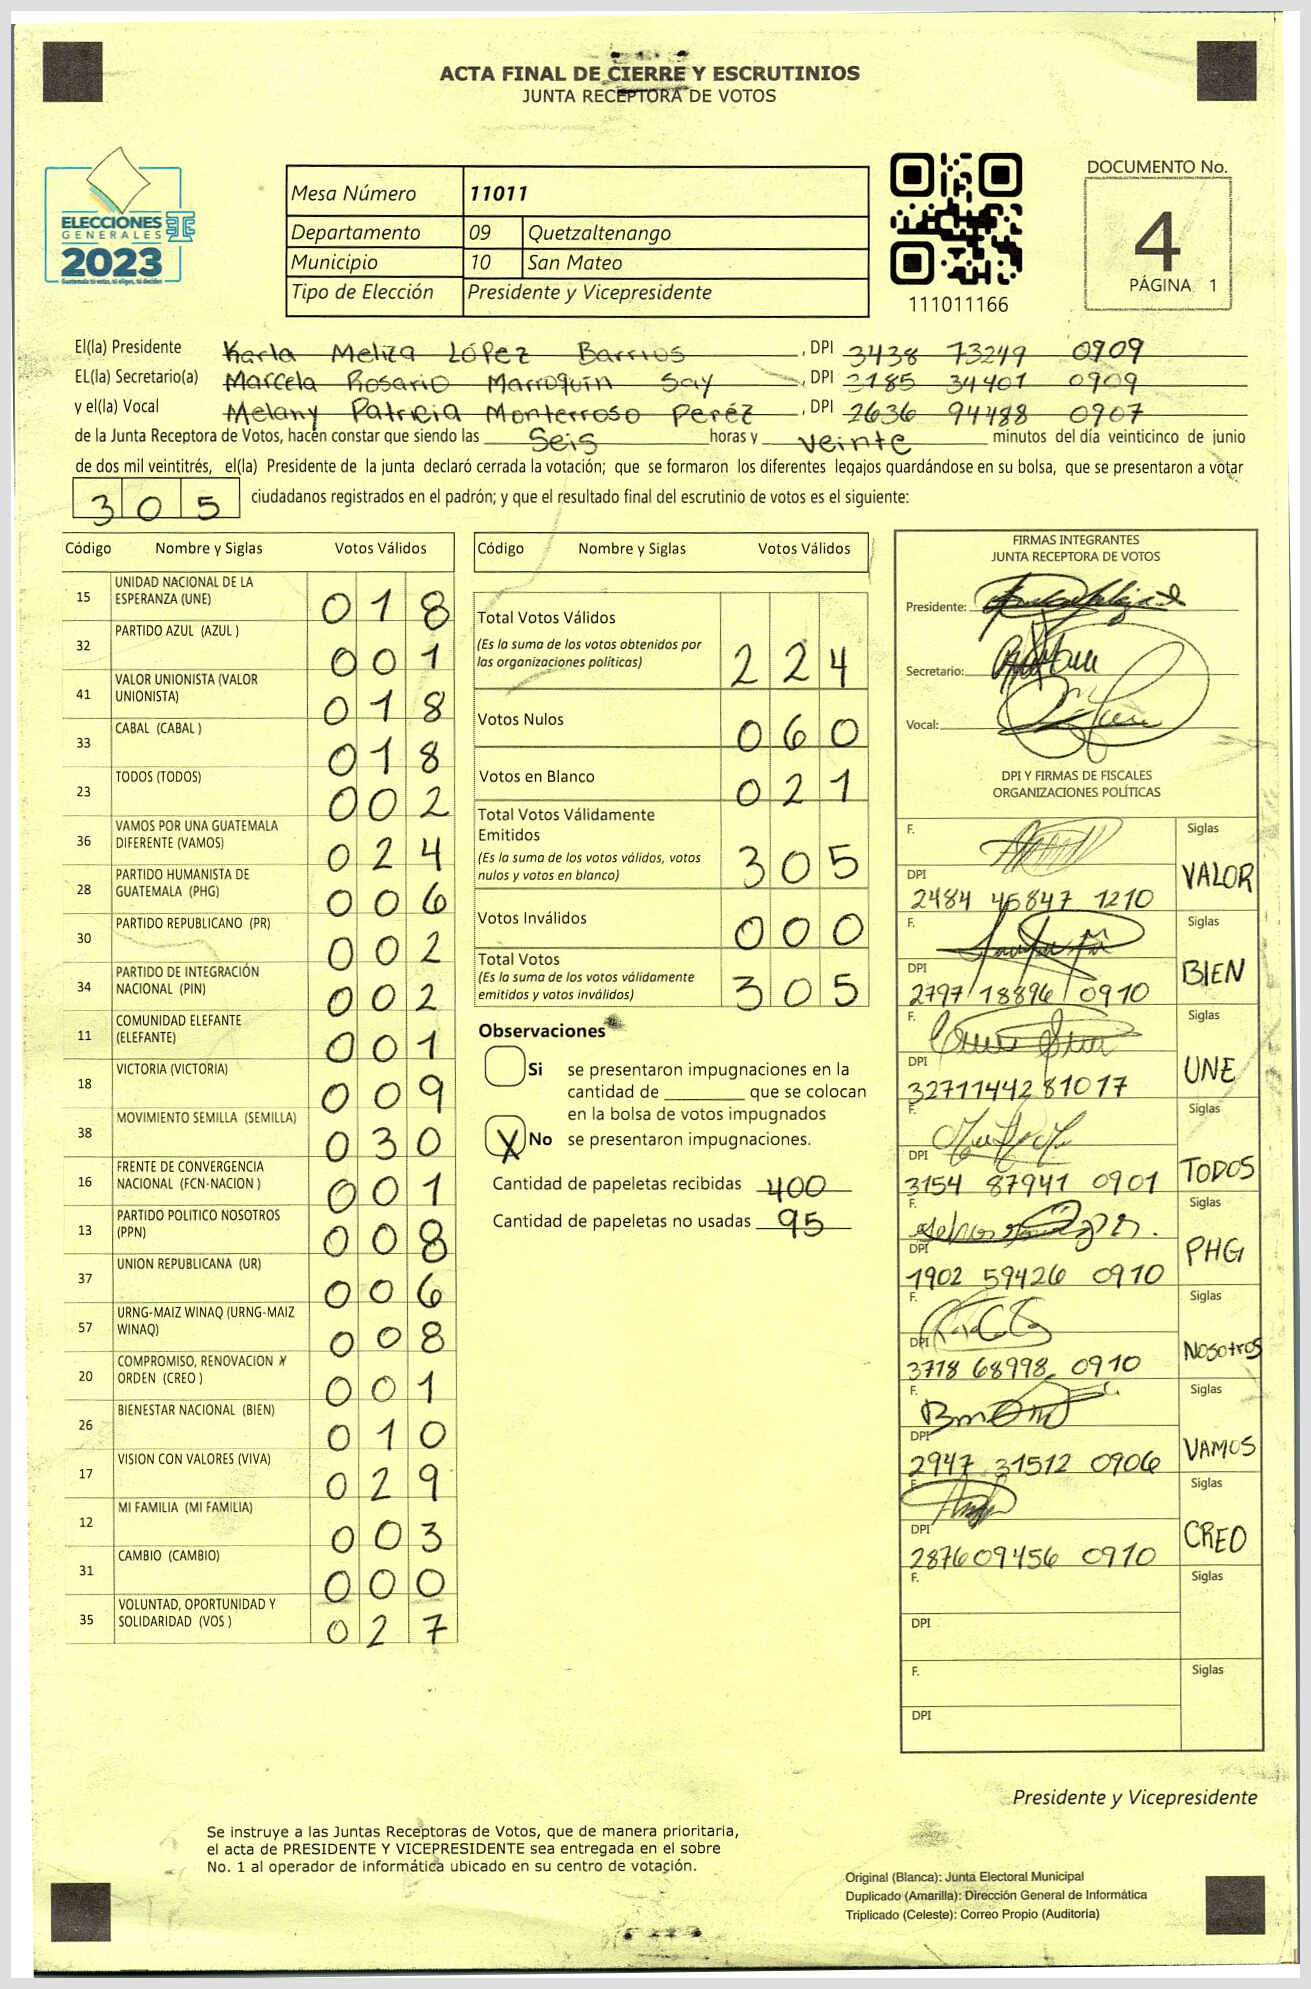 ACTA FINAL DE CIERRE Y ESCRUTINIOS
JUNTA RECEPTORA DE VOTOS
ELECCIONES
GENERALES
2023
Guatemala tu votas, tú eliges, tú decides
Mesa Número 11011
Departamento 09 Quetzaltenango
Municipio 10 San Mateo
Tipo de Elección Presidente y Vicepresidente
111011166
DOCUMENTO No.
4
PÁGINA 1
El(la) Presidente Karla Meliza López Barrios , DPI 3438 73249 0909
EL(la) Secretario(a) Marcela Rosario Marroquin Say , DPI 3185 34401 0909
y el(la) Vocal Melany Patricia Monterroso Peréz , DPI 2636 94488 0907
de la Junta Receptora de Votos, hacen constar que siendo las Seis horas y veinte minutos del día veinticinco de junio
de dos mil veintitrés, el(la) Presidente de la junta declaró cerrada la votación; que se formaron los diferentes legajos guardándose en su bolsa, que se presentaron a votar
305 ciudadanos registrados en el padrón; y que el resultado final del escrutinio de votos es el siguiente:
Código Nombre y Siglas Votos Válidos
15 UNIDAD NACIONAL DE LA ESPERANZA (UNE) 018
32 PARTIDO AZUL (AZUL ) 001
41 VALOR UNIONISTA (VALOR UNIONISTA) 018
33 CABAL (CABAL ) 018
23 TODOS (TODOS) 002
36 VAMOS POR UNA GUATEMALA DIFERENTE (VAMOS) 024
28 PARTIDO HUMANISTA DE GUATEMALA (PHG) 006
30 PARTIDO REPUBLICANO (PR) 002
34 PARTIDO DE INTEGRACIÓN NACIONAL (PIN) 002
11 COMUNIDAD ELEFANTE (ELEFANTE) 001
18 VICTORIA (VICTORIA) 009
38 MOVIMIENTO SEMILLA (SEMILLA) 030
16 FRENTE DE CONVERGENCIA NACIONAL (FCN-NACION ) 001
13 PARTIDO POLITICO NOSOTROS (PPN) 008
37 UNION REPUBLICANA (UR) 006
57 URNG-MAIZ WINAQ (URNG-MAIZ WINAQ) 008
20 COMPROMISO, RENOVACION Y ORDEN (CREO ) 001
26 BIENESTAR NACIONAL (BIEN) 010
17 VISION CON VALORES (VIVA) 029
12 MI FAMILIA (MI FAMILIA) 003
31 CAMBIO (CAMBIO) 000
35 VOLUNTAD, OPORTUNIDAD Y SOLIDARIDAD (VOS ) 027
Código Nombre y Siglas Votos Válidos
Total Votos Válidos 224
(Es la suma de los votos obtenidos por
las organizaciones políticas)
Votos Nulos 060
Votos en Blanco 021
Total Votos Válidamente
Emitidos 305
(Es la suma de los votos válidos, votos
nulos y votos en blanco)
Votos Inválidos 000
Total Votos 305
(Es la suma de los votos válidamente
emitidos y votos inválidos)
Observaciones
Si se presentaron impugnaciones en la
cantidad de ________ que se colocan
en la bolsa de votos impugnados
X No se presentaron impugnaciones.
Cantidad de papeletas recibidas 400
Cantidad de papeletas no usadas 95
FIRMAS INTEGRANTES
JUNTA RECEPTORA DE VOTOS
Presidente:
Secretario:
Vocal:
DPI Y FIRMAS DE FISCALES
ORGANIZACIONES POLÍTICAS
F. Siglas
DPI VALOR
2484 45847 1210
F. Siglas
DPI BIEN
2797 18896 0910
F. Siglas
DPI UNE
32711442 81017
F. Siglas
DPI TODOS
3154 87941 0901
F. Siglas
DPI PHG
1902 59426 0910
F. Siglas
DPI Nosotros
3718 68998 0910
F. Siglas
DPI VAMOS
2947 31512 0906
F. Siglas
DPI CREO
287609456 0910
F. Siglas
DPI
F. Siglas
DPI
Presidente y Vicepresidente
Se instruye a las Juntas Receptoras de Votos, que de manera prioritaria,
el acta de PRESIDENTE Y VICEPRESIDENTE sea entregada en el sobre
No. 1 al operador de informática ubicado en su centro de votación.
Original (Blanca): Junta Electoral Municipal
Duplicado (Amarilla): Dirección General de Informática
Triplicado (Celeste): Correo Propio (Auditoría)